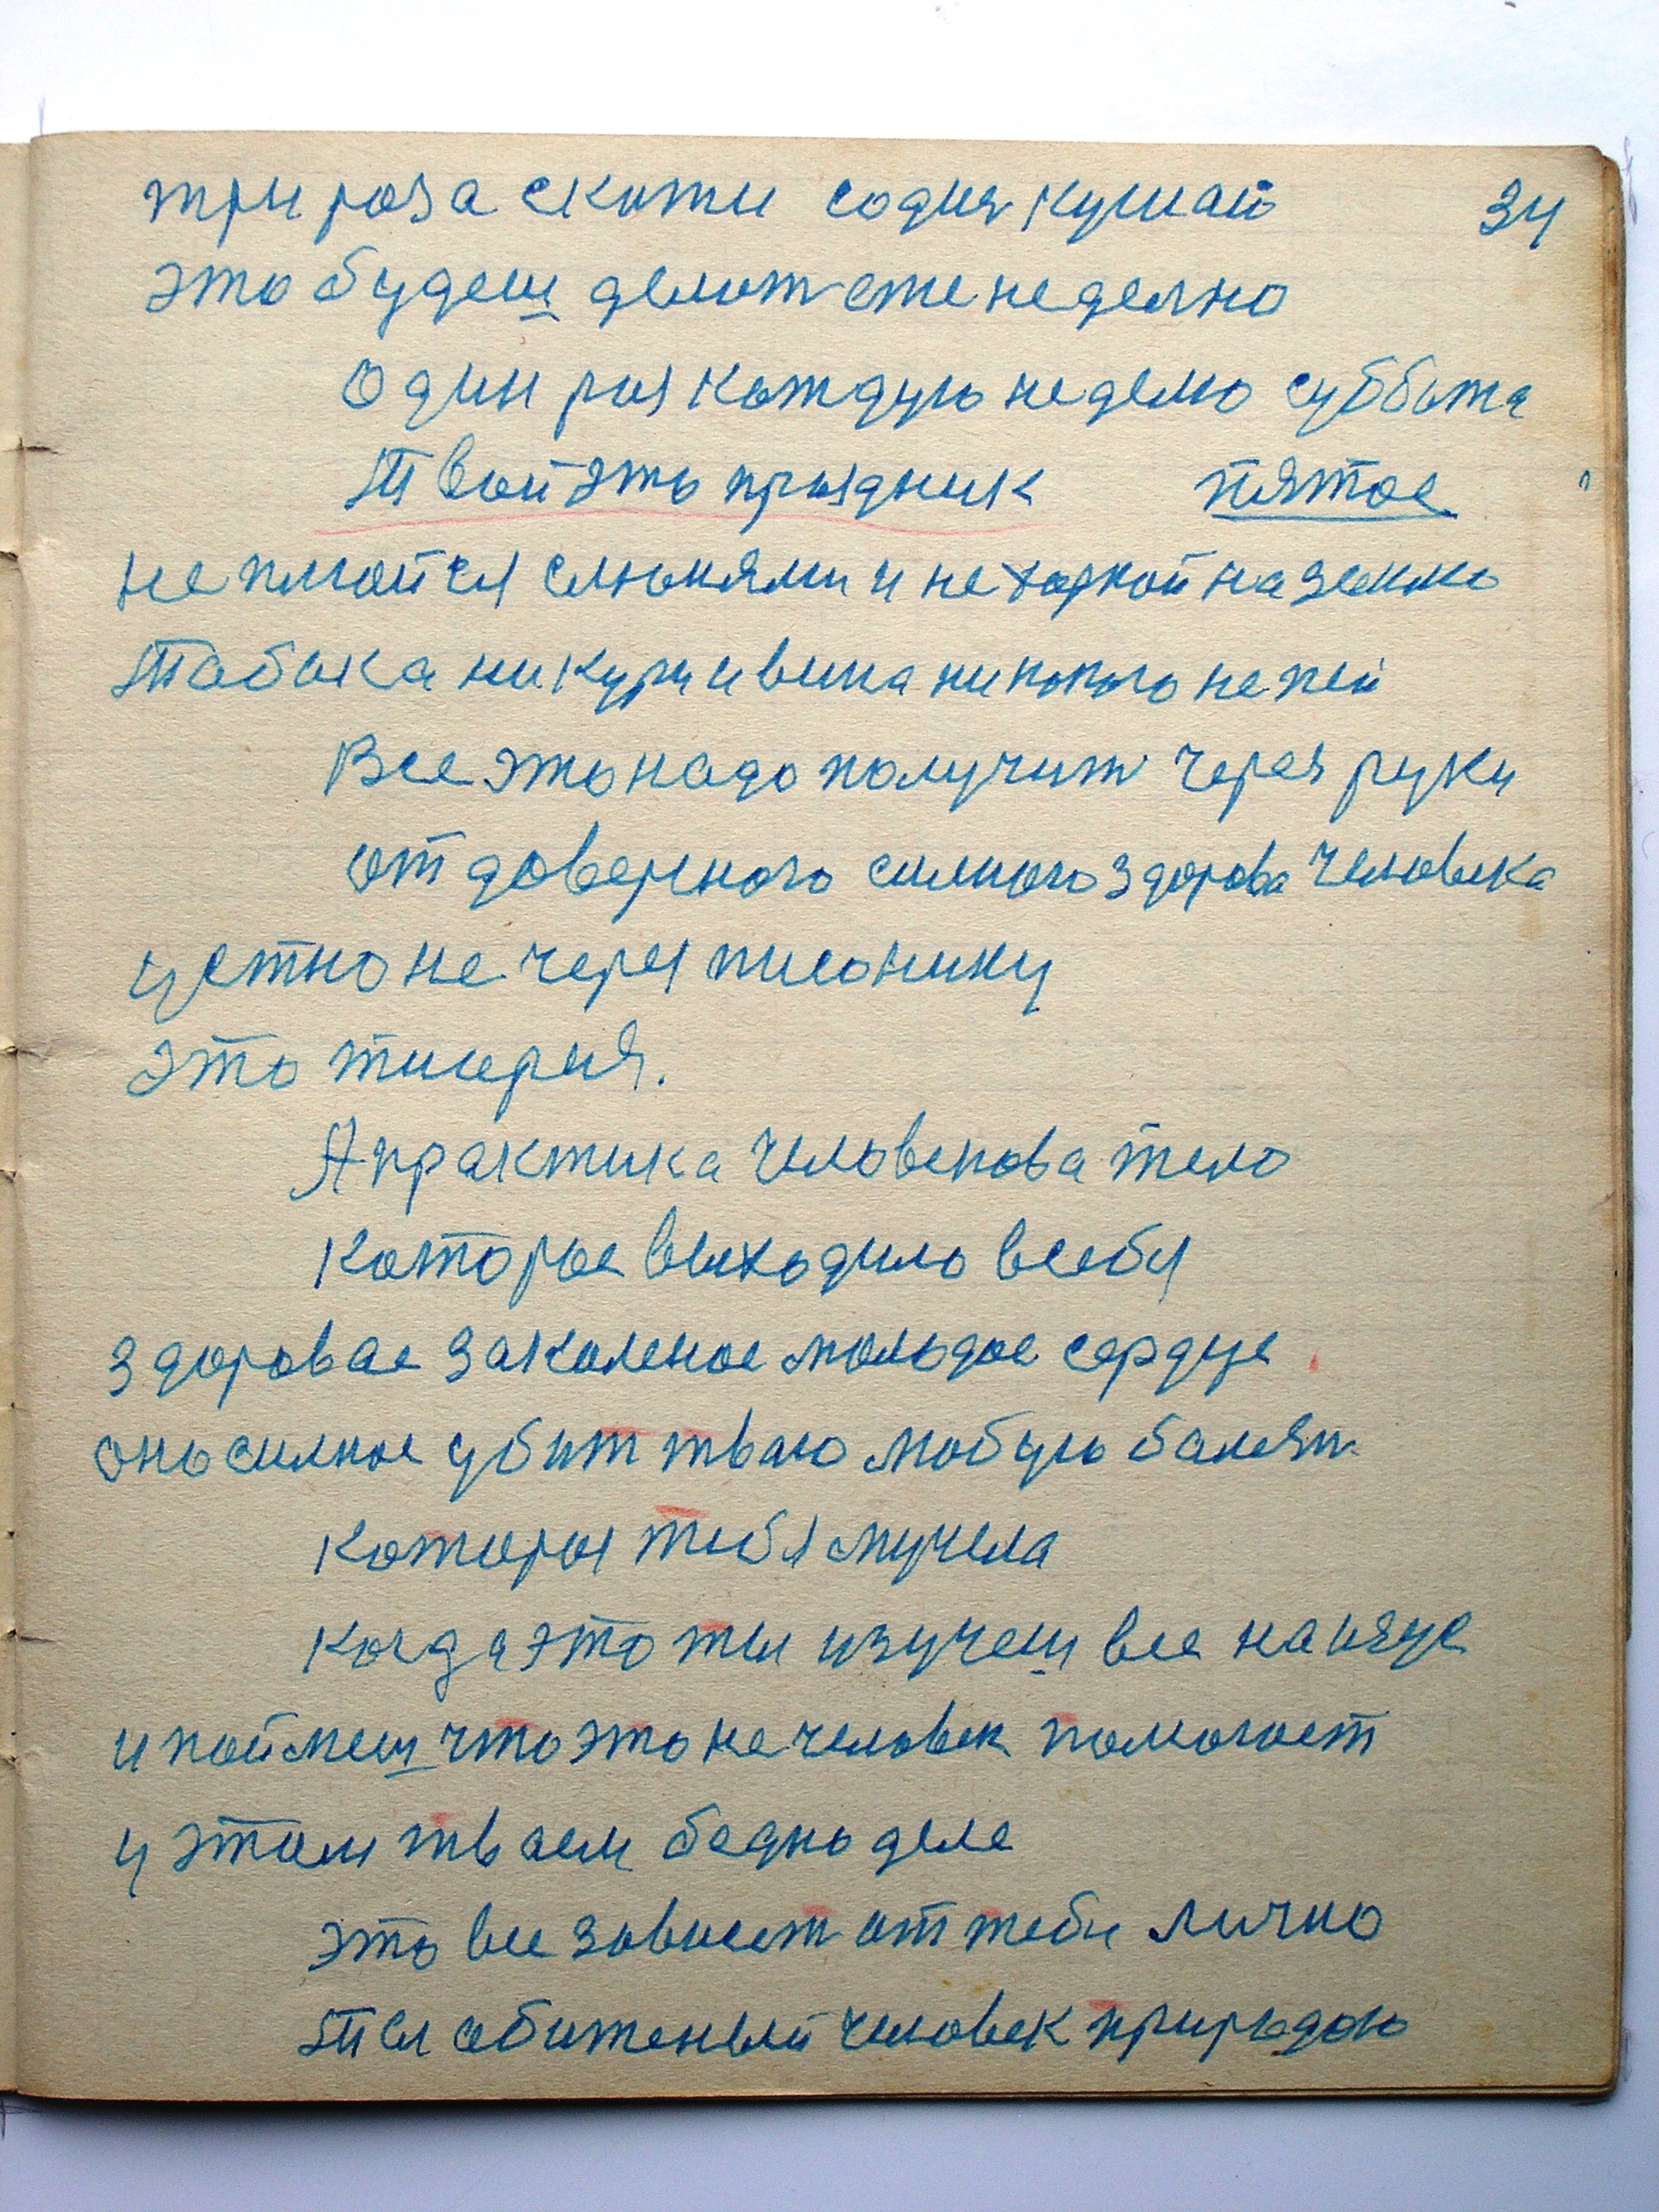 три роза скоти содня кушай 34
это будеш делот еженеделно
Один раз каждую неделю суббота
Твой это праздник пятое
не плюйся слюнями и не харкой на землю
Табака ни кури и вина никокого не пей
Все это надо получит через руки
от доверного силного здорова человека
устно не через писонину
это тиерия.
А практика человекова тело
которое выходило всебя
здоровае закаленое молодое сердце
оно силное убит тваю любую балезн
которая тибя мучела
когда это ты изучеш все наизус
и поймеш что это не человек помогает
у этом тваем бедно деле
это все зовисет от тебя лично
Ты обиженый человек природою